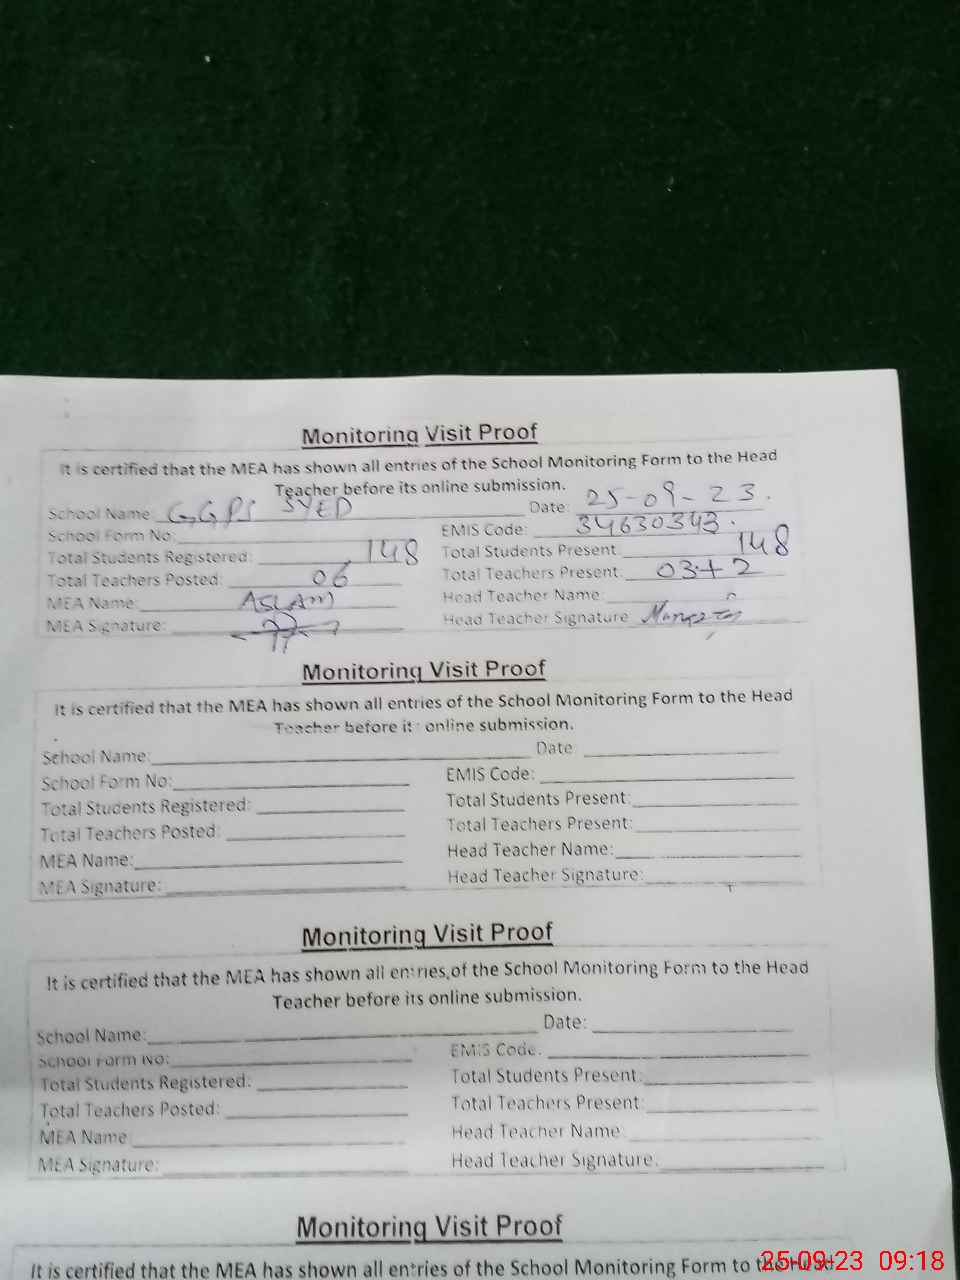 Monitoring Visit Proof
It is certified that the MEA has shown all entries of the School Monitoring Form to the Head
Teacher before its online submission.
School Name: GGPS SYED Date: 25-09-23.
School Form No: EMIS Code: 34630343.
Total Students Registered: 148 Total Students Present: 148
Total Teachers Posted: 06 Total Teachers Present: 03+2
MEA Name: ASLAM Head Teacher Name:
MEA Signature: Head Teacher Signature
Monitoring Visit Proof
It is certified that the MEA has shown all entries of the School Monitoring Form to the Head
Teacher before its online submission.
School Name: Date
School Form No: EMIS Code:
Total Students Registered: Total Students Present:
Total Teachers Posted: Total Teachers Present:
MEA Name: Head Teacher Name:
MEA Signature: Head Teacher Signature:
Monitoring Visit Proof
It is certified that the MEA has shown all entries of the School Monitoring Form to the Head
Teacher before its online submission.
School Name: Date:
School Form No: EMIS Code:
Total Students Registered: Total Students Present:
Total Teachers Posted: Total Teachers Present:
MEA Name Head Teacher Name
MEA Signature: Head Teacher Signature:
Monitoring Visit Proof
It is certified that the MEA has shown all entries of the School Monitoring Form to the Head
25-09-23 09:18